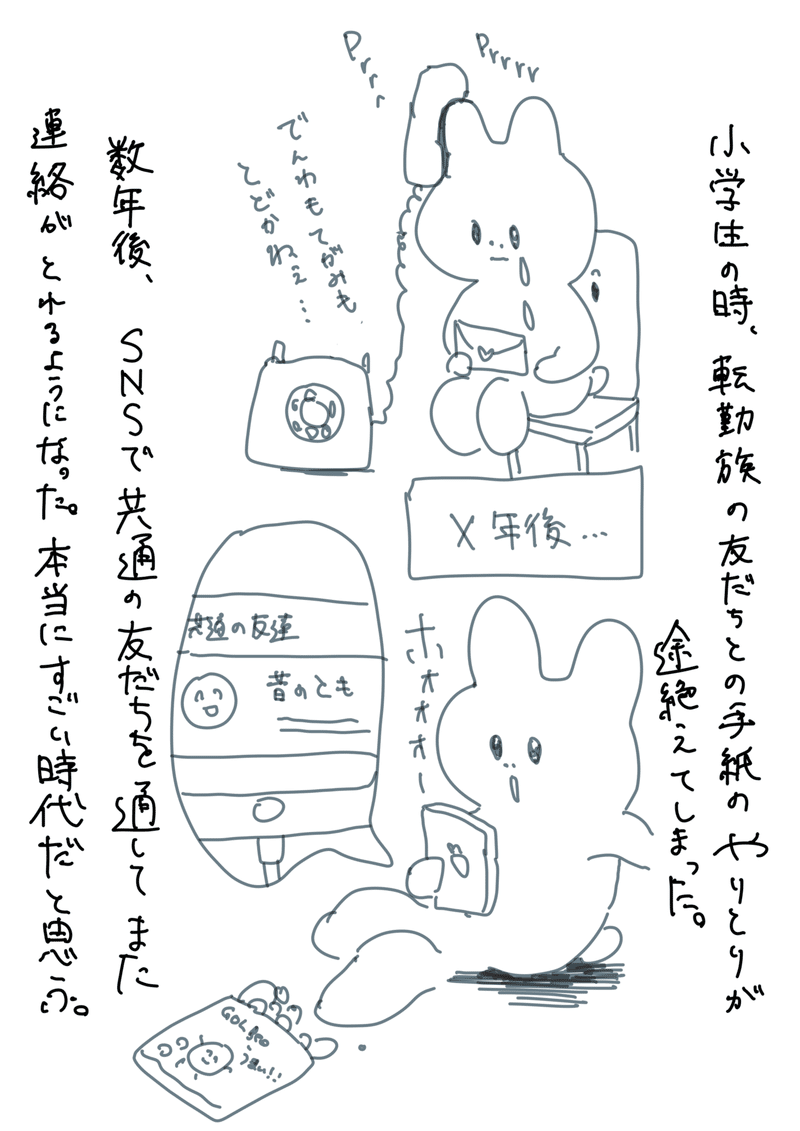 小学生の時、転勤族の友だちとの手紙のやりとりが
途絶えてしまった。
Prrrr
Prrr
でんわもてがみも
とどかねぇ…
X年後…
ホォォォォー
共通の友達
昔のとも
数年後、SNSで共通の友だちを通してまた
連絡がとれるようになった。本当にすごい時代だと思う。
うまい!!